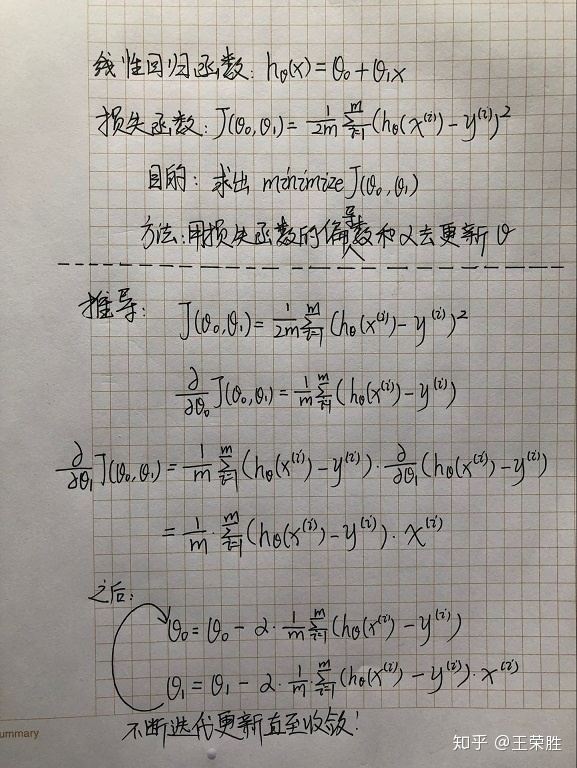 线性回归函数: hθ(x) = θ₀ + θ₁x
损失函数: J(θ₀,θ₁) = 1/2m ∑ᵢ₌₁ᵐ (hθ(x⁽ⁱ⁾) − y⁽ⁱ⁾)²
目的: 求出 minimize J(θ₀,θ₁)
方法: 用损失函数的偏导数和α去更新θ
推导: J(θ₀,θ₁) = 1/2m ∑ᵢ₌₁ᵐ (hθ(x⁽ⁱ⁾) − y⁽ⁱ⁾)²
∂/∂θ₀ J(θ₀,θ₁) = 1/m ∑ᵢ₌₁ᵐ (hθ(x⁽ⁱ⁾) − y⁽ⁱ⁾)
∂/∂θ₁ J(θ₀,θ₁) = 1/m ∑ᵢ₌₁ᵐ (hθ(x⁽ⁱ⁾) − y⁽ⁱ⁾) · ∂/∂θ₁ (hθ(x⁽ⁱ⁾) − y⁽ⁱ⁾)
= 1/m · ∑ᵢ₌₁ᵐ (hθ(x⁽ⁱ⁾) − y⁽ⁱ⁾) · x⁽ⁱ⁾
之后:
θ₀ = θ₀ − α · 1/m ∑ᵢ₌₁ᵐ (hθ(x⁽ⁱ⁾) − y⁽ⁱ⁾)
θ₁ = θ₁ − α · 1/m ∑ᵢ₌₁ᵐ (hθ(x⁽ⁱ⁾) − y⁽ⁱ⁾) · x⁽ⁱ⁾
不断迭代更新直至收敛!
ummary
知乎 @王荣胜